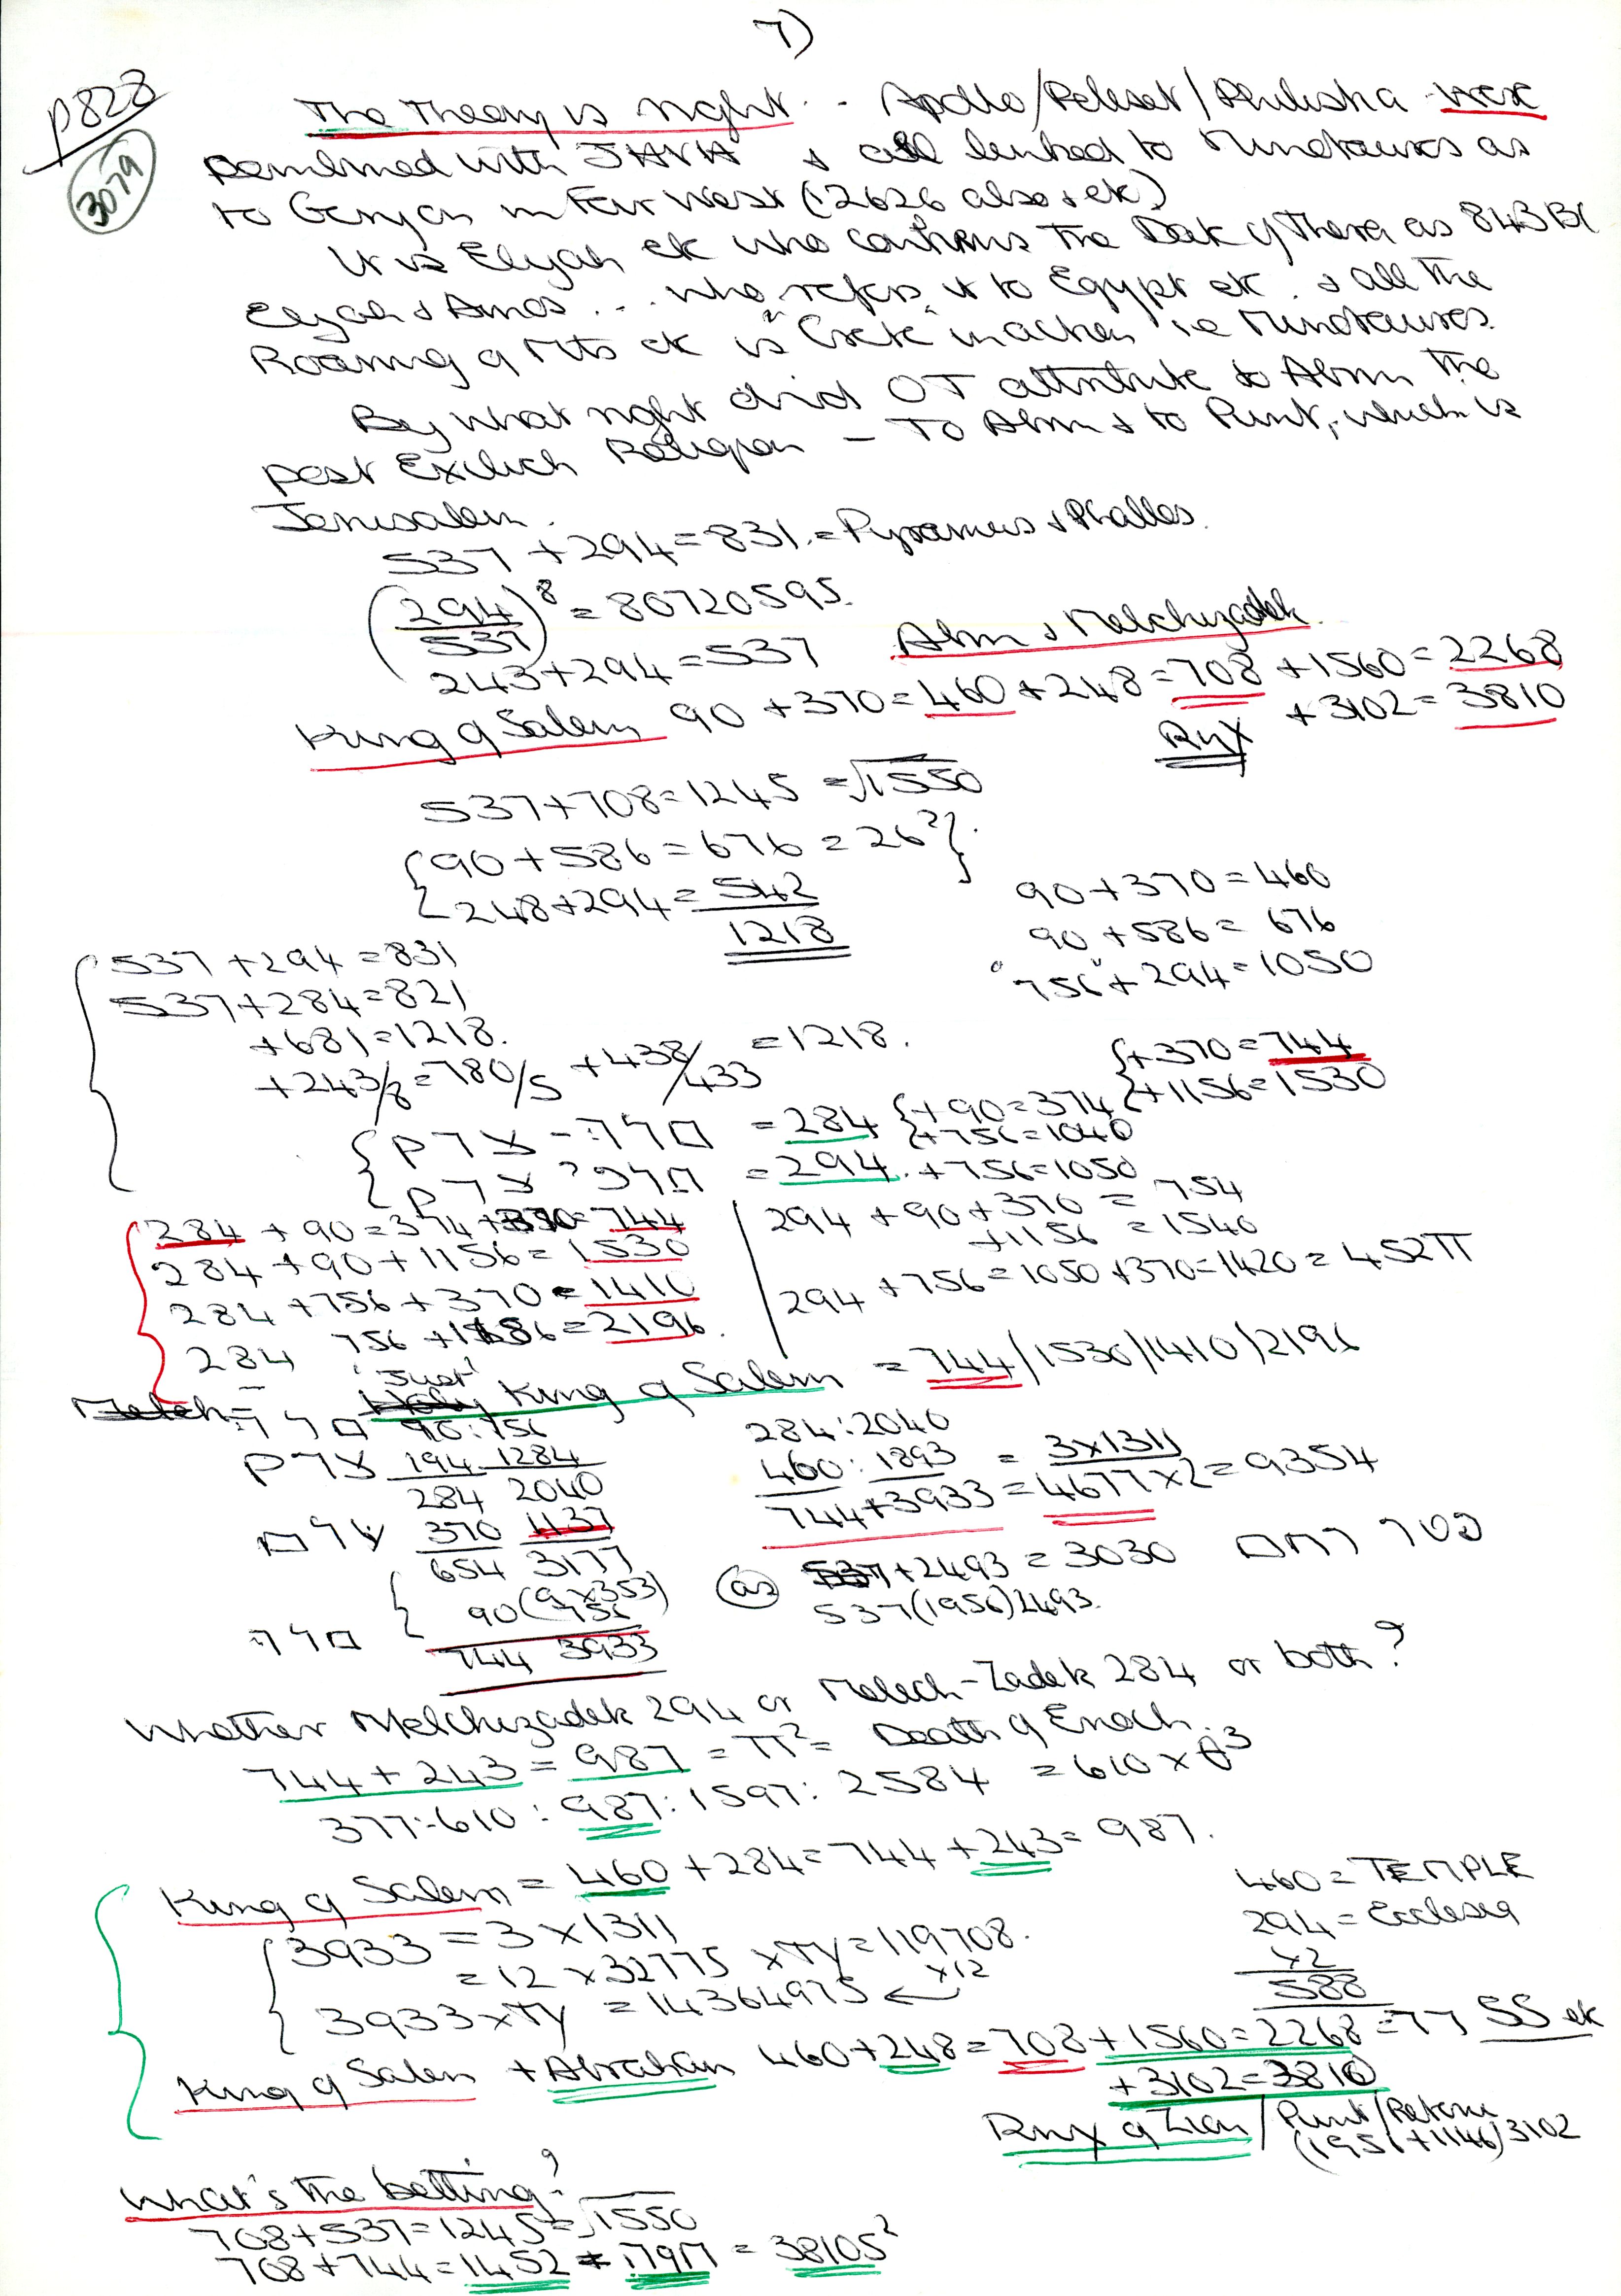 7)
P828
3079
The Theory is right .. Apollo/Peleset/Philistia were
combined with JAVA & all linked to Minotaurs as
to Geryon in Far West (12626 also & etc)
It is Elijah etc who confirms the Date of Thera as 843 BC
Elijah & Amos ... who refers it to Egypt etc. & all the
Roaming of Mts etc is "Crete" in action ie Minotaures.
By what right did OT attribute to Abram the
post Exilich Religion - To Abram & to Punt, which is
Jerusalem.
537 + 294 = 831 = Pyramus & Phallos.
(294/537)⁸ = 80720595.
243 + 294 = 537
Abram & Melchizadek
King of Salem 90 + 370 = 460 + 248 = 708 + 1560 = 2268
+ 3102 = 3810
Rnx
537 + 708 = 1245 = √1550
{90 + 586 = 676 = 26²}
{248 + 294 = 542
1218
90 + 370 = 460
90 + 586 = 676
"756" + 294 = 1050
537 + 294 = 831
537 + 284 = 821
+ 681 = 1218.
+ 243/8 = 780/5 + 438/433 = 1218.
{+ 370 = 744
{+ 1156 = 1530
מלך - צדק = 284 {+ 90 = 374
{+ 756 = 1040
מלכי צדק = 294. + 756 = 1050
284 + 90 = 374 + 370 = 744
284 + 90 + 1156 = 1530
284 + 756 + 370 = 1410
284 756 + 1156 = 2196.
294 + 90 + 370 = 754
+ 1156 = 1540
294 + 756 = 1050 + 370 = 1420 = 452π
'Just'
Holy King of Salem = 744/1530/1410/2196
Melech =
מלך 90 : 756
צדק 194 1284
284 2040
שלם 370 1137
654 3177
(9 x 353)
מלך { 90 756
744 3933
284 : 2040
460 : 1893 = 3 x 1311
744 + 3933 = 4677 x 2 = 9354
(as) 537 + 2493 = 3030
537 (1956) 2493.
Whether Melchizadek 294 or Melech-Zadek 284 or both?
744 + 243 = 987 = π² = Death of Enoch.
377 : 610 : 987 : 1597 : 2584 = 610 x θ³
King of Salem = 460 + 284 = 744 + 243 = 987.
{3933 = 3 x 1311
= 12 x 32775 x Ty = 119708.
3933 x Ty = 14364975 ← x 12
460 = TEMPLE
294 = Ecclesia
x2
588
King of Salem + Abraham 460 + 248 = 708 + 1560 = 2268 = 77 SS etc
+ 3102 = 3810
Rnx of Zion / Punt / Retenu
(1956 + 1146) 3102
What's the betting?
708 + 537 = 1245 = √1550
708 + 744 = 1452 = 38105²